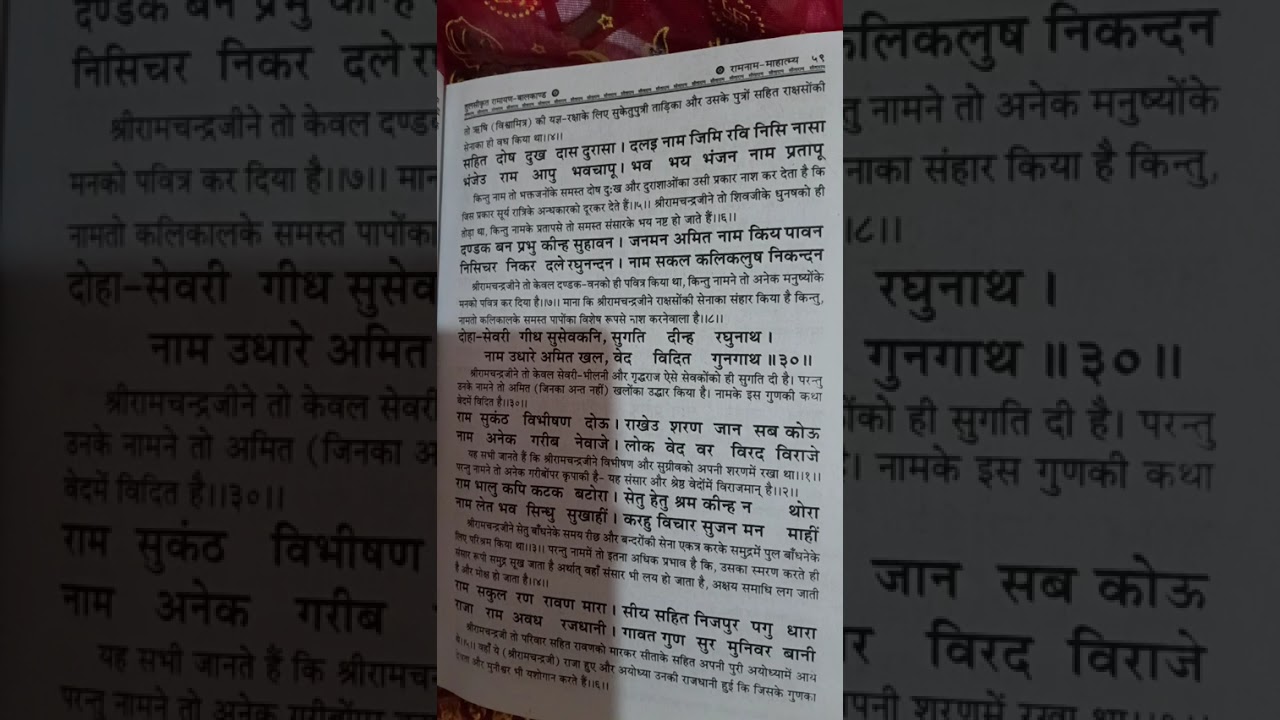 तुलसीकृत रामायण-बालकाण्ड
रामनाम-माहात्म्य ५९
तो ऋषि (विश्वामित्र) की यज्ञ-रक्षाके लिए सुकेतुपुत्री ताड़िका और उसके पुत्रों सहित राक्षसोंकी
सेनाका ही वध किया था।।४।।
सहित दोष दुख दास दुरासा। दलइ नाम जिमि रवि निसि नासा
भंजेउ राम आपु भवचापू। भव भय भंजन नाम प्रतापू
किन्तु नाम तो भक्तजनोंके समस्त दोष दुःख और दुराशाओंका उसी प्रकार नाश कर देता है कि
जिस प्रकार सूर्य रात्रिके अन्धकारको दूरकर देते हैं।।५।। श्रीरामचन्द्रजीने तो शिवजीके धुनषको ही
तोड़ा था, किन्तु नामके प्रतापसे तो समस्त संसारके भय नष्ट हो जाते हैं।।६।।
दण्डक बन प्रभु कीन्ह सुहावन। जनमन अमित नाम किय पावन
निसिचर निकर दले रघुनन्दन। नाम सकल कलिकलुष निकन्दन
श्रीरामचन्द्रजीने तो केवल दण्डक-वनको ही पवित्र किया था, किन्तु नामने तो अनेक मनुष्योंके
मनको पवित्र कर दिया है।।७।। माना कि श्रीरामचन्द्रजीने राक्षसोंकी सेनाका संहार किया है किन्तु,
नामतो कलिकालके समस्त पापोंका विशेष रूपसे नाश करनेवाला है।।८।।
दोहा-सेवरी गीध सुसेवकनि, सुगति दीन्ह रघुनाथ।
नाम उधारे अमित खल, वेद विदित गुनगाथ॥३०॥
श्रीरामचन्द्रजीने तो केवल सेवरी-भीलनी और गृद्धराज ऐसे सेवकोंको ही सुगति दी है। परन्तु
उनके नामने तो अमित (जिनका अन्त नहीं) खलोंका उद्धार किया है। नामके इस गुणकी कथा
वेदमें विदित है।।३०।।
राम सुकंठ विभीषण दोऊ। राखेउ शरण जान सब कोऊ
नाम अनेक गरीब नेवाजे। लोक वेद वर विरद विराजे
यह सभी जानते हैं कि श्रीरामचन्द्रजीने विभीषण और सुग्रीवको अपनी शरणमें रखा था।।१।।
परन्तु नामने तो अनेक गरीबोंपर कृपाकी है- यह संसार और श्रेष्ठ वेदोंमें विराजमान् है।।२।।
राम भालु कपि कटक बटोरा। सेतु हेतु श्रम कीन्ह न थोरा
नाम लेत भव सिन्धु सुखाहीं। करहु विचार सुजन मन माहीं
श्रीरामचन्द्रजीने सेतु बाँधनेके समय रीछ और बन्दरोंकी सेना एकत्र करके समुद्रमें पुल बाँधनेके
लिए परिश्रम किया था।।३।। परन्तु नाममें तो इतना अधिक प्रभाव है कि, उसका स्मरण करते ही
संसार रूपी समुद्र सूख जाता है अर्थात् वहाँ संसार भी लय हो जाता है, अक्षय समाधि लग जाती
है और मोक्ष हो जाता है।।४।।
राम सकुल रण रावण मारा। सीय सहित निजपुर पगु धारा
राजा राम अवध रजधानी। गावत गुण सुर मुनिवर बानी
श्रीरामचन्द्रजी तो परिवार सहित रावणको मारकर सीताके सहित अपनी पुरी अयोध्यामें आय
थे।।५।। वहाँ ये (श्रीरामचन्द्रजी) राजा हुए और अयोध्या उनकी राजधानी हुई कि जिसके गुणका
देवता और मुनीश्वर भी यशोगान करते हैं।।६।।